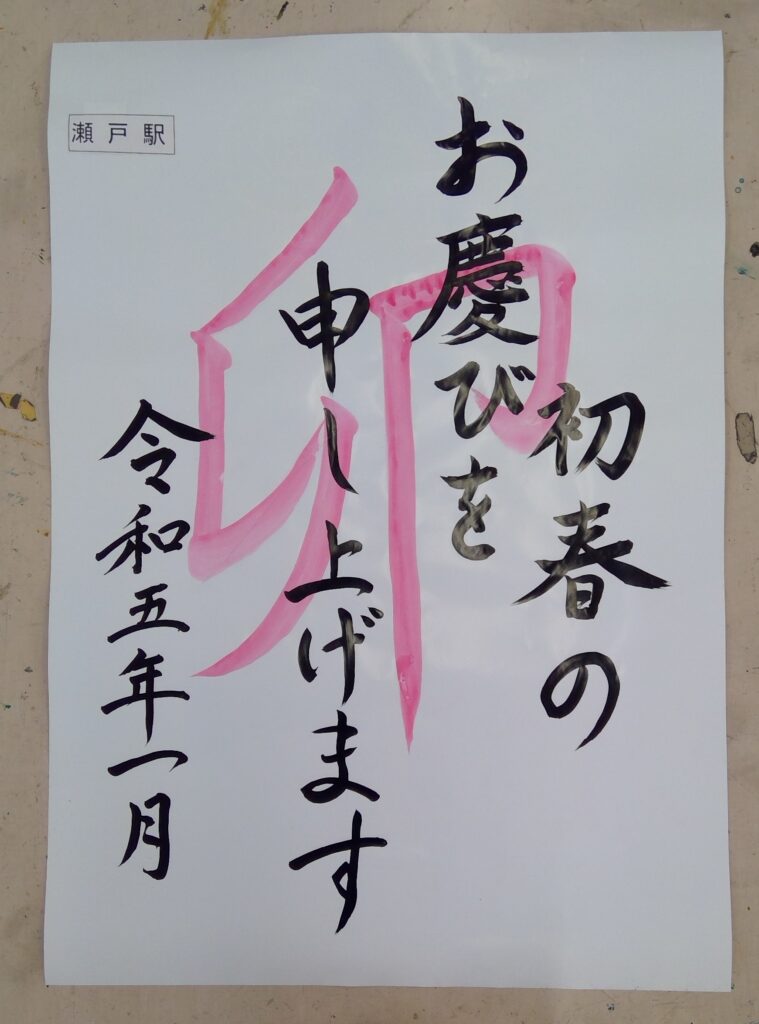 初春の
お慶びを
申し上げます
令和五年一月
卯
瀬戸駅